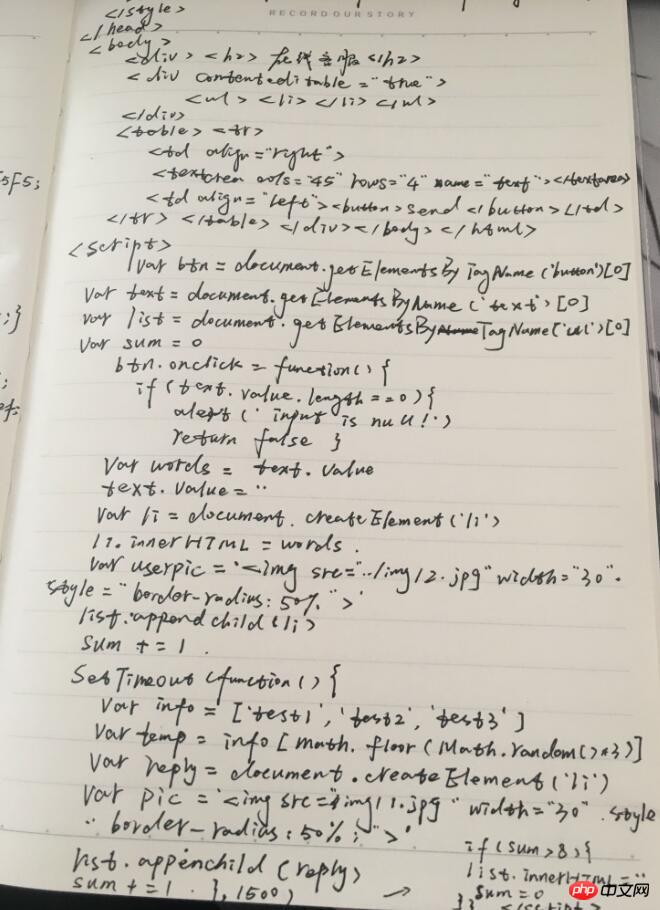 RECORD OUR STORY
</style>
</head>
<body>
<div> <h2> 在线客服 </h2>
<div contenteditable="true">
<ul> <li> </li> </ul>
</div>
<table> <tr>
<td align="right">
5F5;
<textarea cols="45" rows="4" name="text"></textarea>
<td align="left"><button>send</button></td>
</tr> </table> </div></body></html>
<script>
var btn = document.getElementsByTagName('button')[0]
var text = document.getElementsByName('text')[0]
;}
var list = document.getElementsByTagName('ul')[0]
var sum = 0
btn.onclick = function(){
if(text.value.length==0){
alert('input is null!')
return false }
var words = text.value
text.value = ''
var li = document.createElement('li')
li.innerHTML = words.
var userpic = '<img src="../img/2.jpg" width="30".
style="border-radius:50%">'
list.appendchild(li)
sum += 1.
SetTimeout(function(){
var info = ['test1','test2','test3']
var temp = info[math.floor(Math.random()*3)]
var reply = document.createElement('li')
var pic = '<img src="img/1.jpg" width="30" .style
"border-radius:50%;">'
list.appenchild(reply)
sum += 1. },1500)
→
if(sum>8){
list.innerHTML=""
sum=0
}} </script>
php 中文网